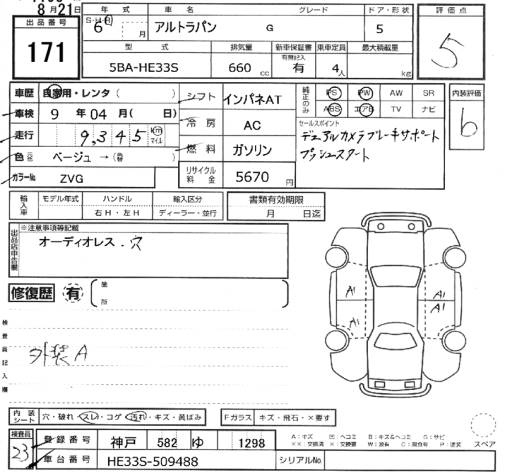 8月21日
出品番号
171
年式
S・H・R
6
月
車名
アルトラパン
グレード
G
ドア・形状
5
評価点
5
型式
5BA-HE33S
排気量
660 cc
新車保証書
有無記入
有
乗車定員
4人
最大積載量
kg
車歴 自家用・レンタ ( )
車検 9 年 04 月 ( 日)
走行 9,345 km マイル
色 ベージュ → ( )
カラーNo. ZVG
シフト インパネAT
冷房 AC
燃料 ガソリン
リサイクル料金 5670 円
純正のみ
PS PW AW SR
ABS エアB TV ナビ
セールスポイント
デュアルカメラブレーキサポート
プッシュスタート
内装評価
6
輸入車
モデル年式
ハンドル
右H・左H
輸入区分
ディーラー・並行
書類有効期限
月 日迄
出品店申告欄
※注意事項等記載
オーディオレス・穴
修復歴 有
箇所
検査員記入欄
外装A
A1
A1
A1
内装シート 穴・破れ・スレ・コゲ・汚れ・キズ・黄ばみ
Fガラス キズ・飛石・×要す
検査員
23
登録番号 神戸 582 ゆ 1298
車台番号 HE33S-509488
シリアルNo.
A:キズ
スペア